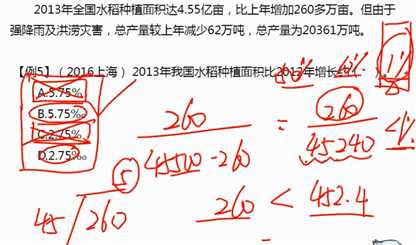 2013年全国水稻种植面积达4.55亿亩，比上年增加260多万亩。但由于
强降雨及洪涝灾害，总产量较上年减少62万吨，总产量为20361万吨。
【例5】（2016上海）2013年我国水稻种植面积比2012年增长
1%
A.5.75%
B.5.75‰
C.2.75%
D.2.75‰
260
45500-260
=
260
45240
<1%
5
45/260
260 < 452.4